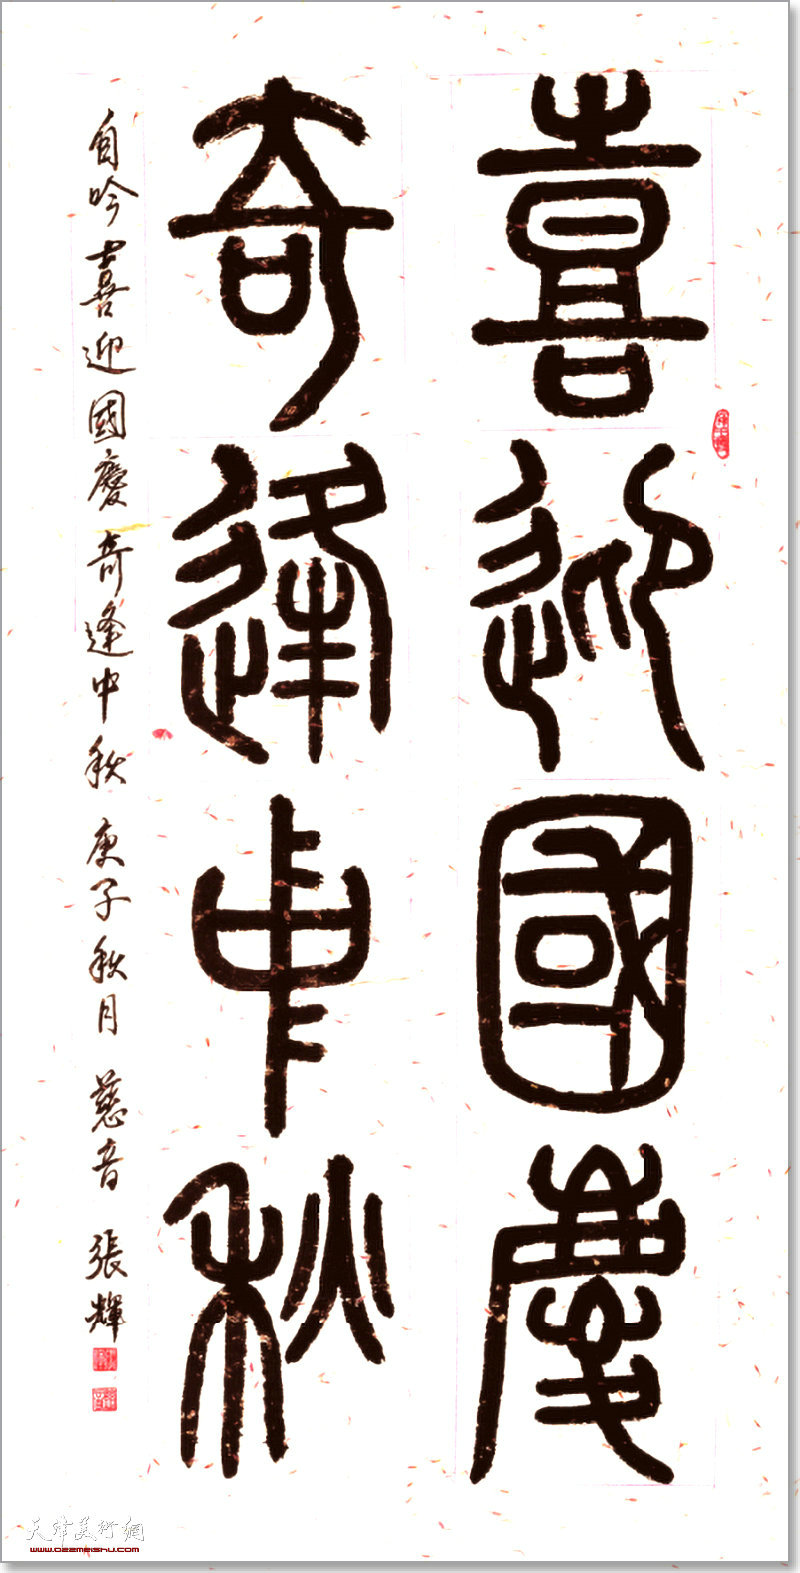 喜迎國慶
奇逢中秋
自吟喜迎國慶奇逢中秋 庚子秋月 慈音 張輝
天津美術網
www.022meishu.com